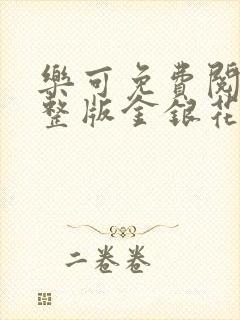 樂可免費閱
整版金銀花
二卷卷